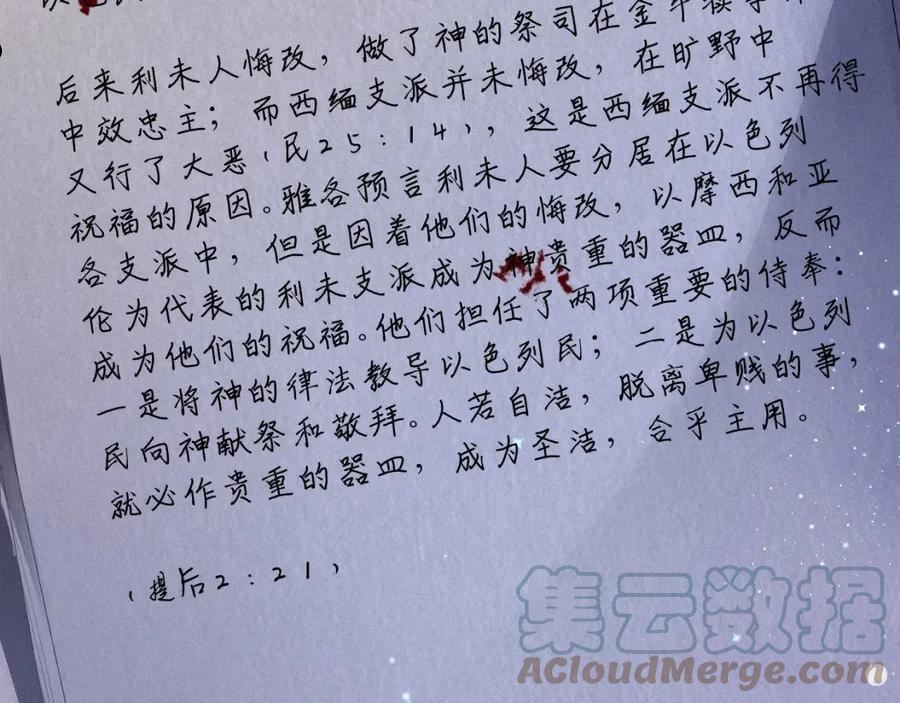 后来利未人悔改，做了神的祭司在金牛犊事
中效忠主；而西缅支派并未悔改，在旷野中
又行了大恶（民25：14），这是西缅支派不再得
祝福的原因。雅各预言利未人要分居在以色列
各支派中，但是因着他们的悔改，以摩西和亚
伦为代表的利未支派成为神贵重的器皿，反而
成为他们的祝福。他们担任了两项重要的侍奉：
一是将神的律法教导以色列民；二是为以色列
民向神献祭和敬拜。人若自洁，脱离卑贱的事，
就必作贵重的器皿，成为圣洁，合乎主用。
（提后2：21）
集云数据
ACloudMerge.com